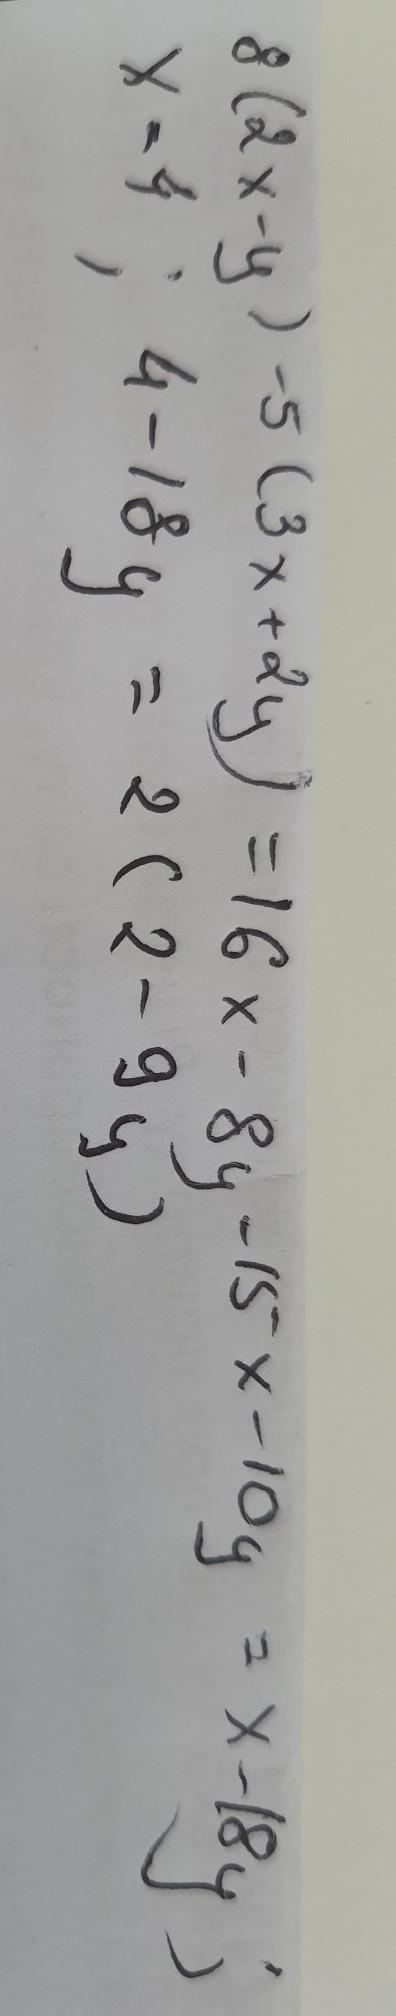 8(2x-y)-5(3x+2y)=16x-8y-15x-10y=x-18y;
x=4; 4-18y=2(2-9y)